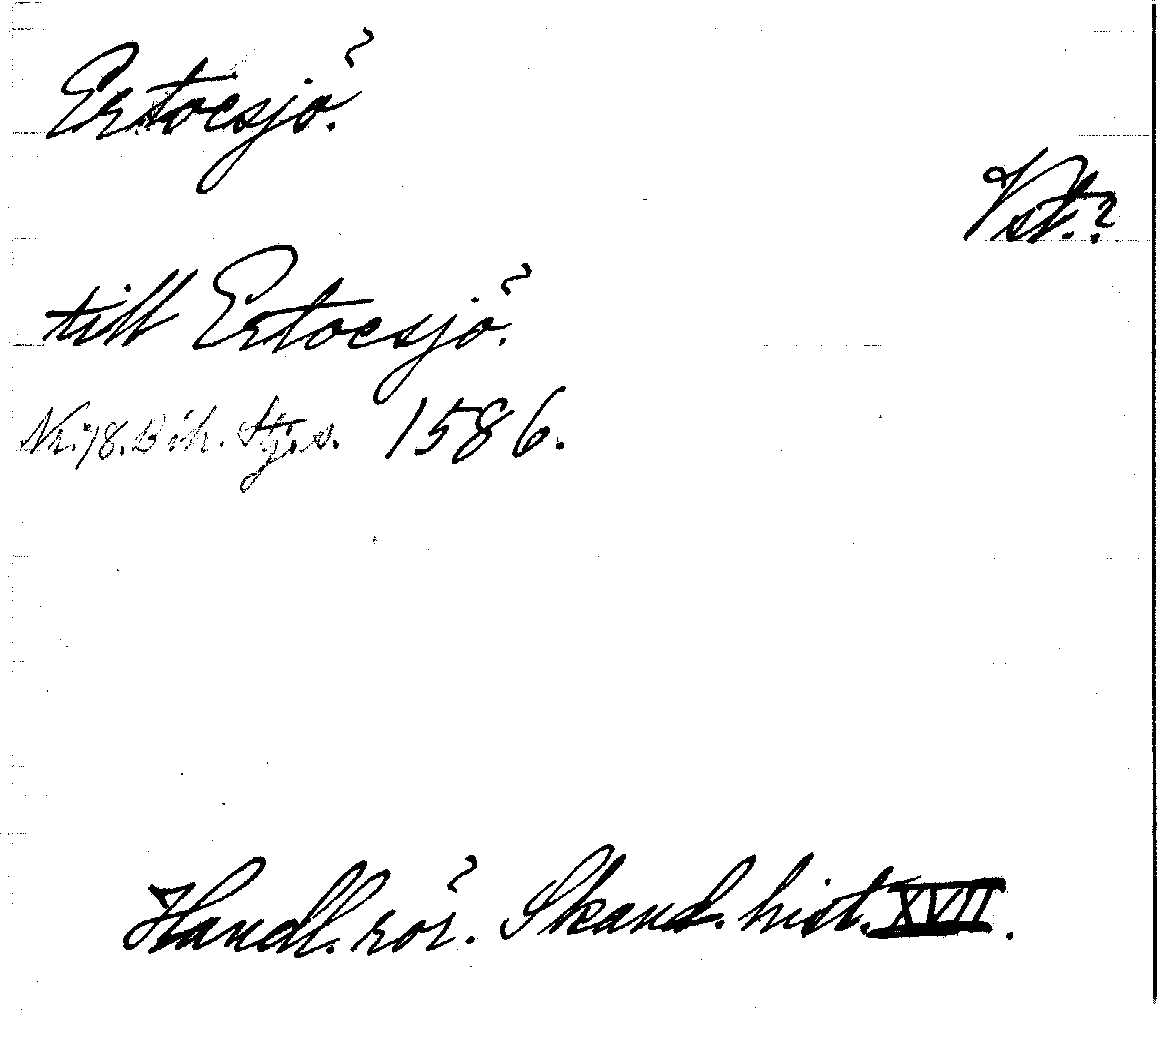 Ertoesjö.
Vst.?
till Ertoesjö.
Nr. 78. Bih. Stj. s. 1586.
Handl. rör. Skand. hist. XVII.